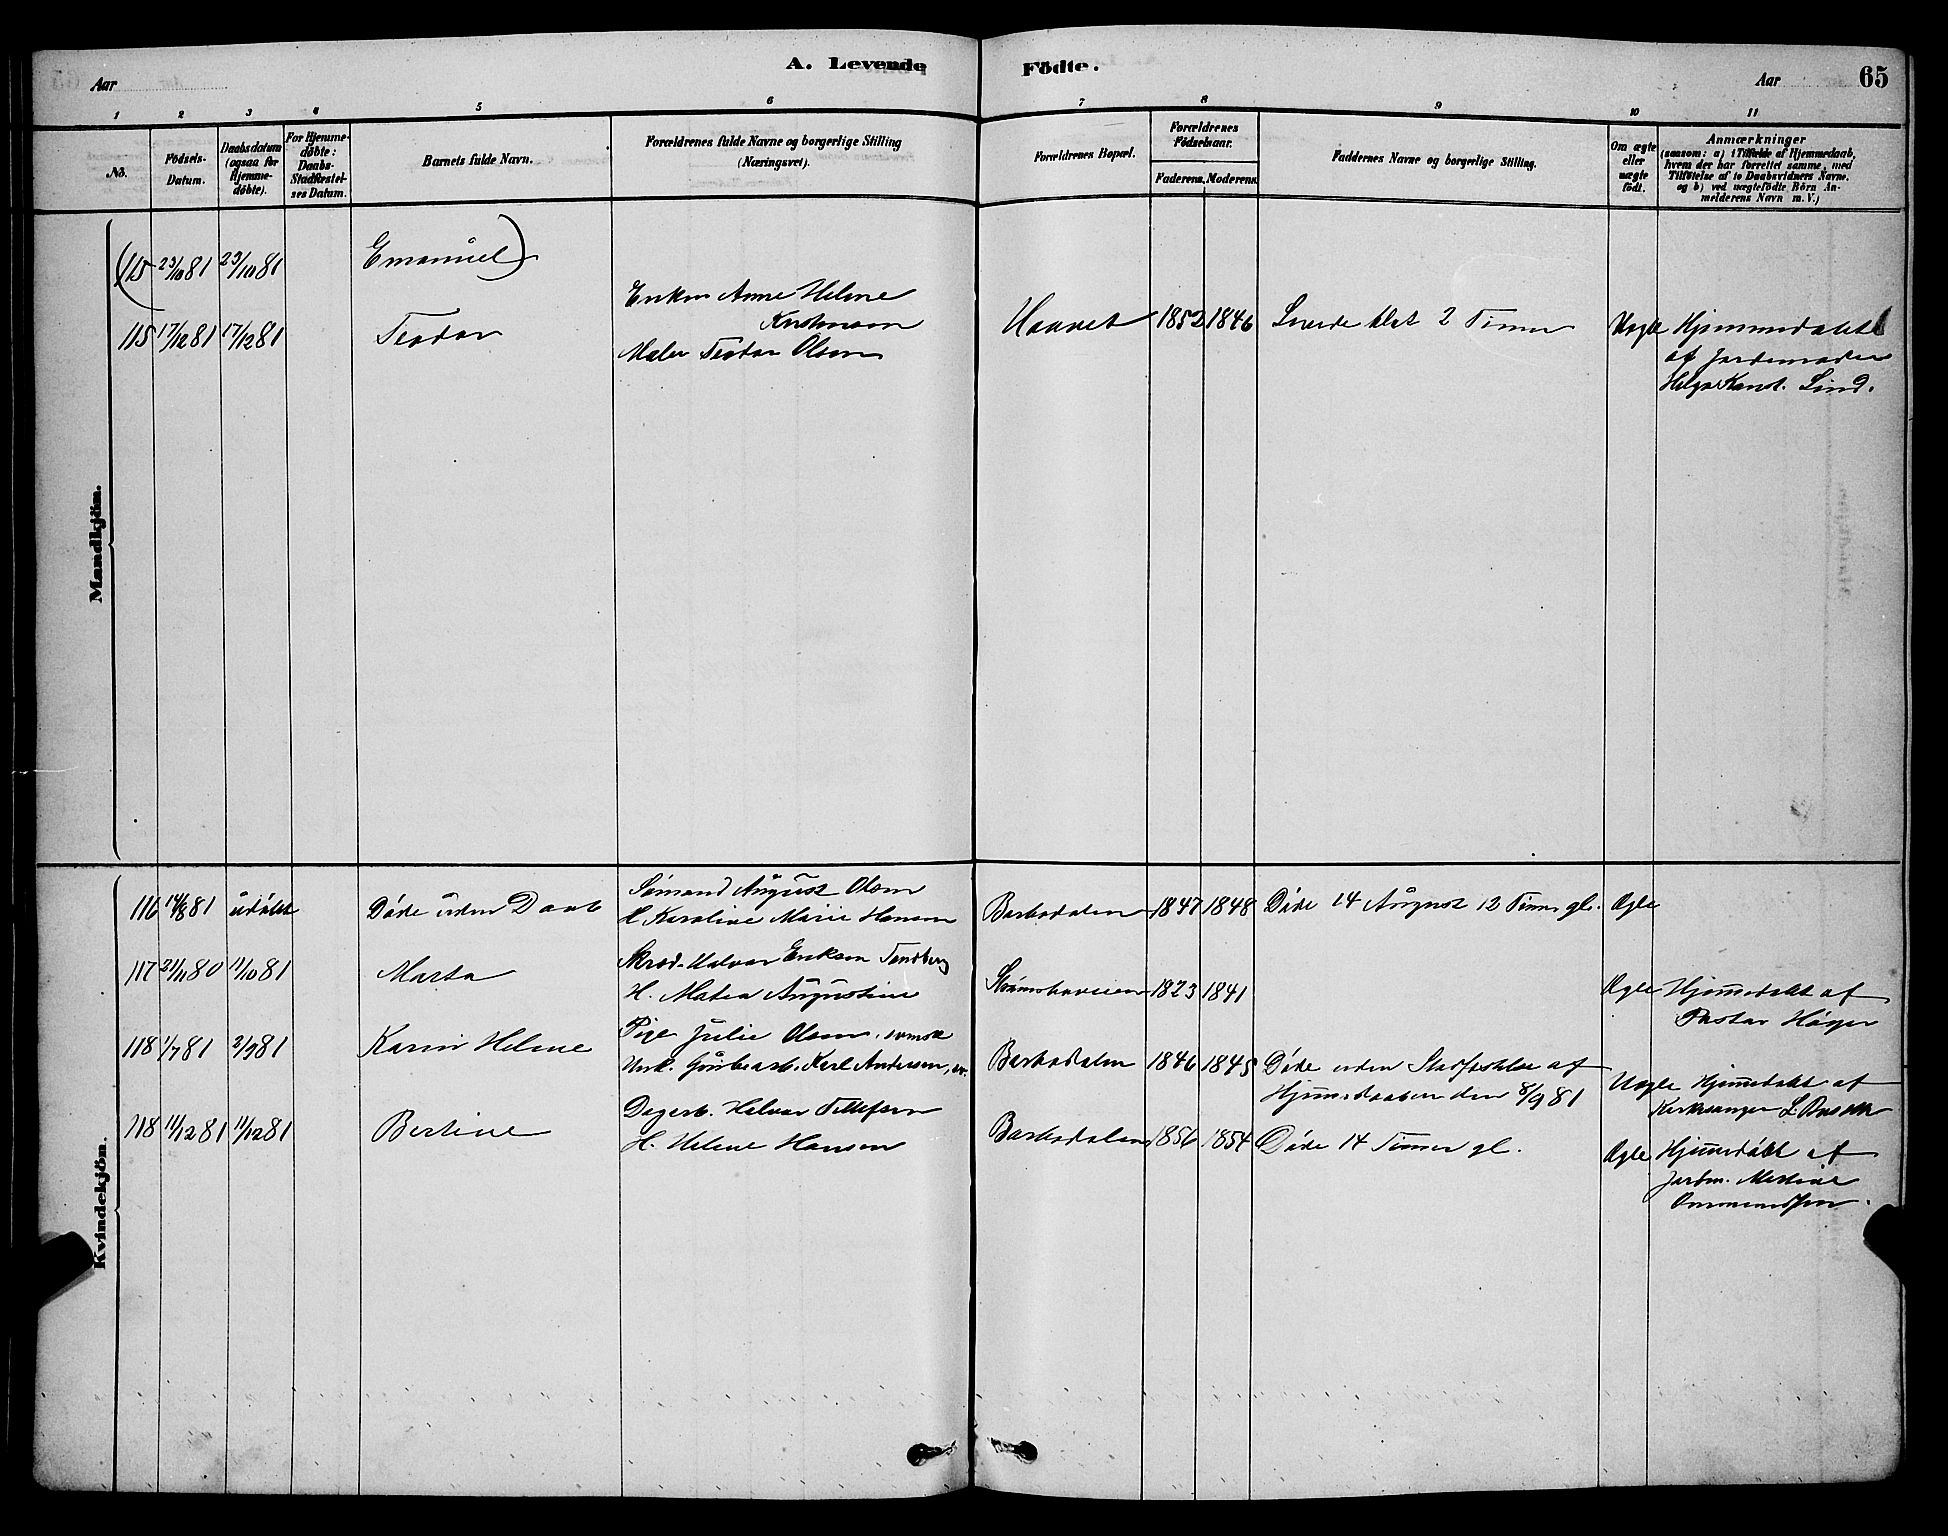 A. Levende Födte.
Aar
Aar
65
1 2 3 4 5 6 7 8 9 10 11
No.
Födsels-Datum.
Daabsdatum (ogsaa for Hjemme-döbte).
For Hjemme-döbte: Daabs-Stadfæstel-ses Datum.
Barnets fulde Navn.
Forældrenes fulde Navne og borgerlige Stilling (Næringsvei).
Forældrenes Bopæl.
Forældrenes Födselsaar.
Faderens. Moderens.
Faddernes Navne og borgerlige Stilling.
Om ægte eller uægte födt.
Anmærkninger
(saasom: a) i Tilfælde af Hjemmedaab,
hvem der har forrettet samme, med
Tilföielse af to Daabsvidners Navne.
og b) ved uægtefödte Börn An-
melderens Navn m. V.)
Mandkjön.
(115 23/10 81 23/10 81 Emanuel)
Enken Anne Helene
115 17/12 81 17/12 81 Teodor
Maler Teodor Olsen
Haavet 1852 1846 Levede blot 2 Timer Uægte Hjemmedøbt
af Jordemoder
Helga Konst. Lind.
Kvindekjön.
116 14/8 81 udöbt Döde uden Daab
Sömand August Olsen
H. Karoline Marie Hansen
Barbodalen 1847 1848 Döde 14 August 12 Timer gl. Ægte
117 21/11 80 11/10 81 Marta
Skræd. Halvor Eriksen Tandberg
H. Matea Augustine
1823 1841 Ægte Hjemmedøbt af
Pastor Höyer
118 1/7 81 2/9 81 Karin Helene
Pige Julie Olsen, svensk
Unk. Karl Andersen, sv.
Barbodalen 1846 1845 Döde uden Stadfæstelse af
Hjemmedaaben den 8/9 81 Uægte Hjemmedøbt af
Kirkesanger L.
118 11/12 81 11/12 81 Bertine
Dagarb. Halvor Tellefsen
H. Helene Hansen
Barbodalen 1856 1854 Döde 14 Timer gl. Ægte Hjemmedøbt af
Jordm. Martine
Ommundsen.